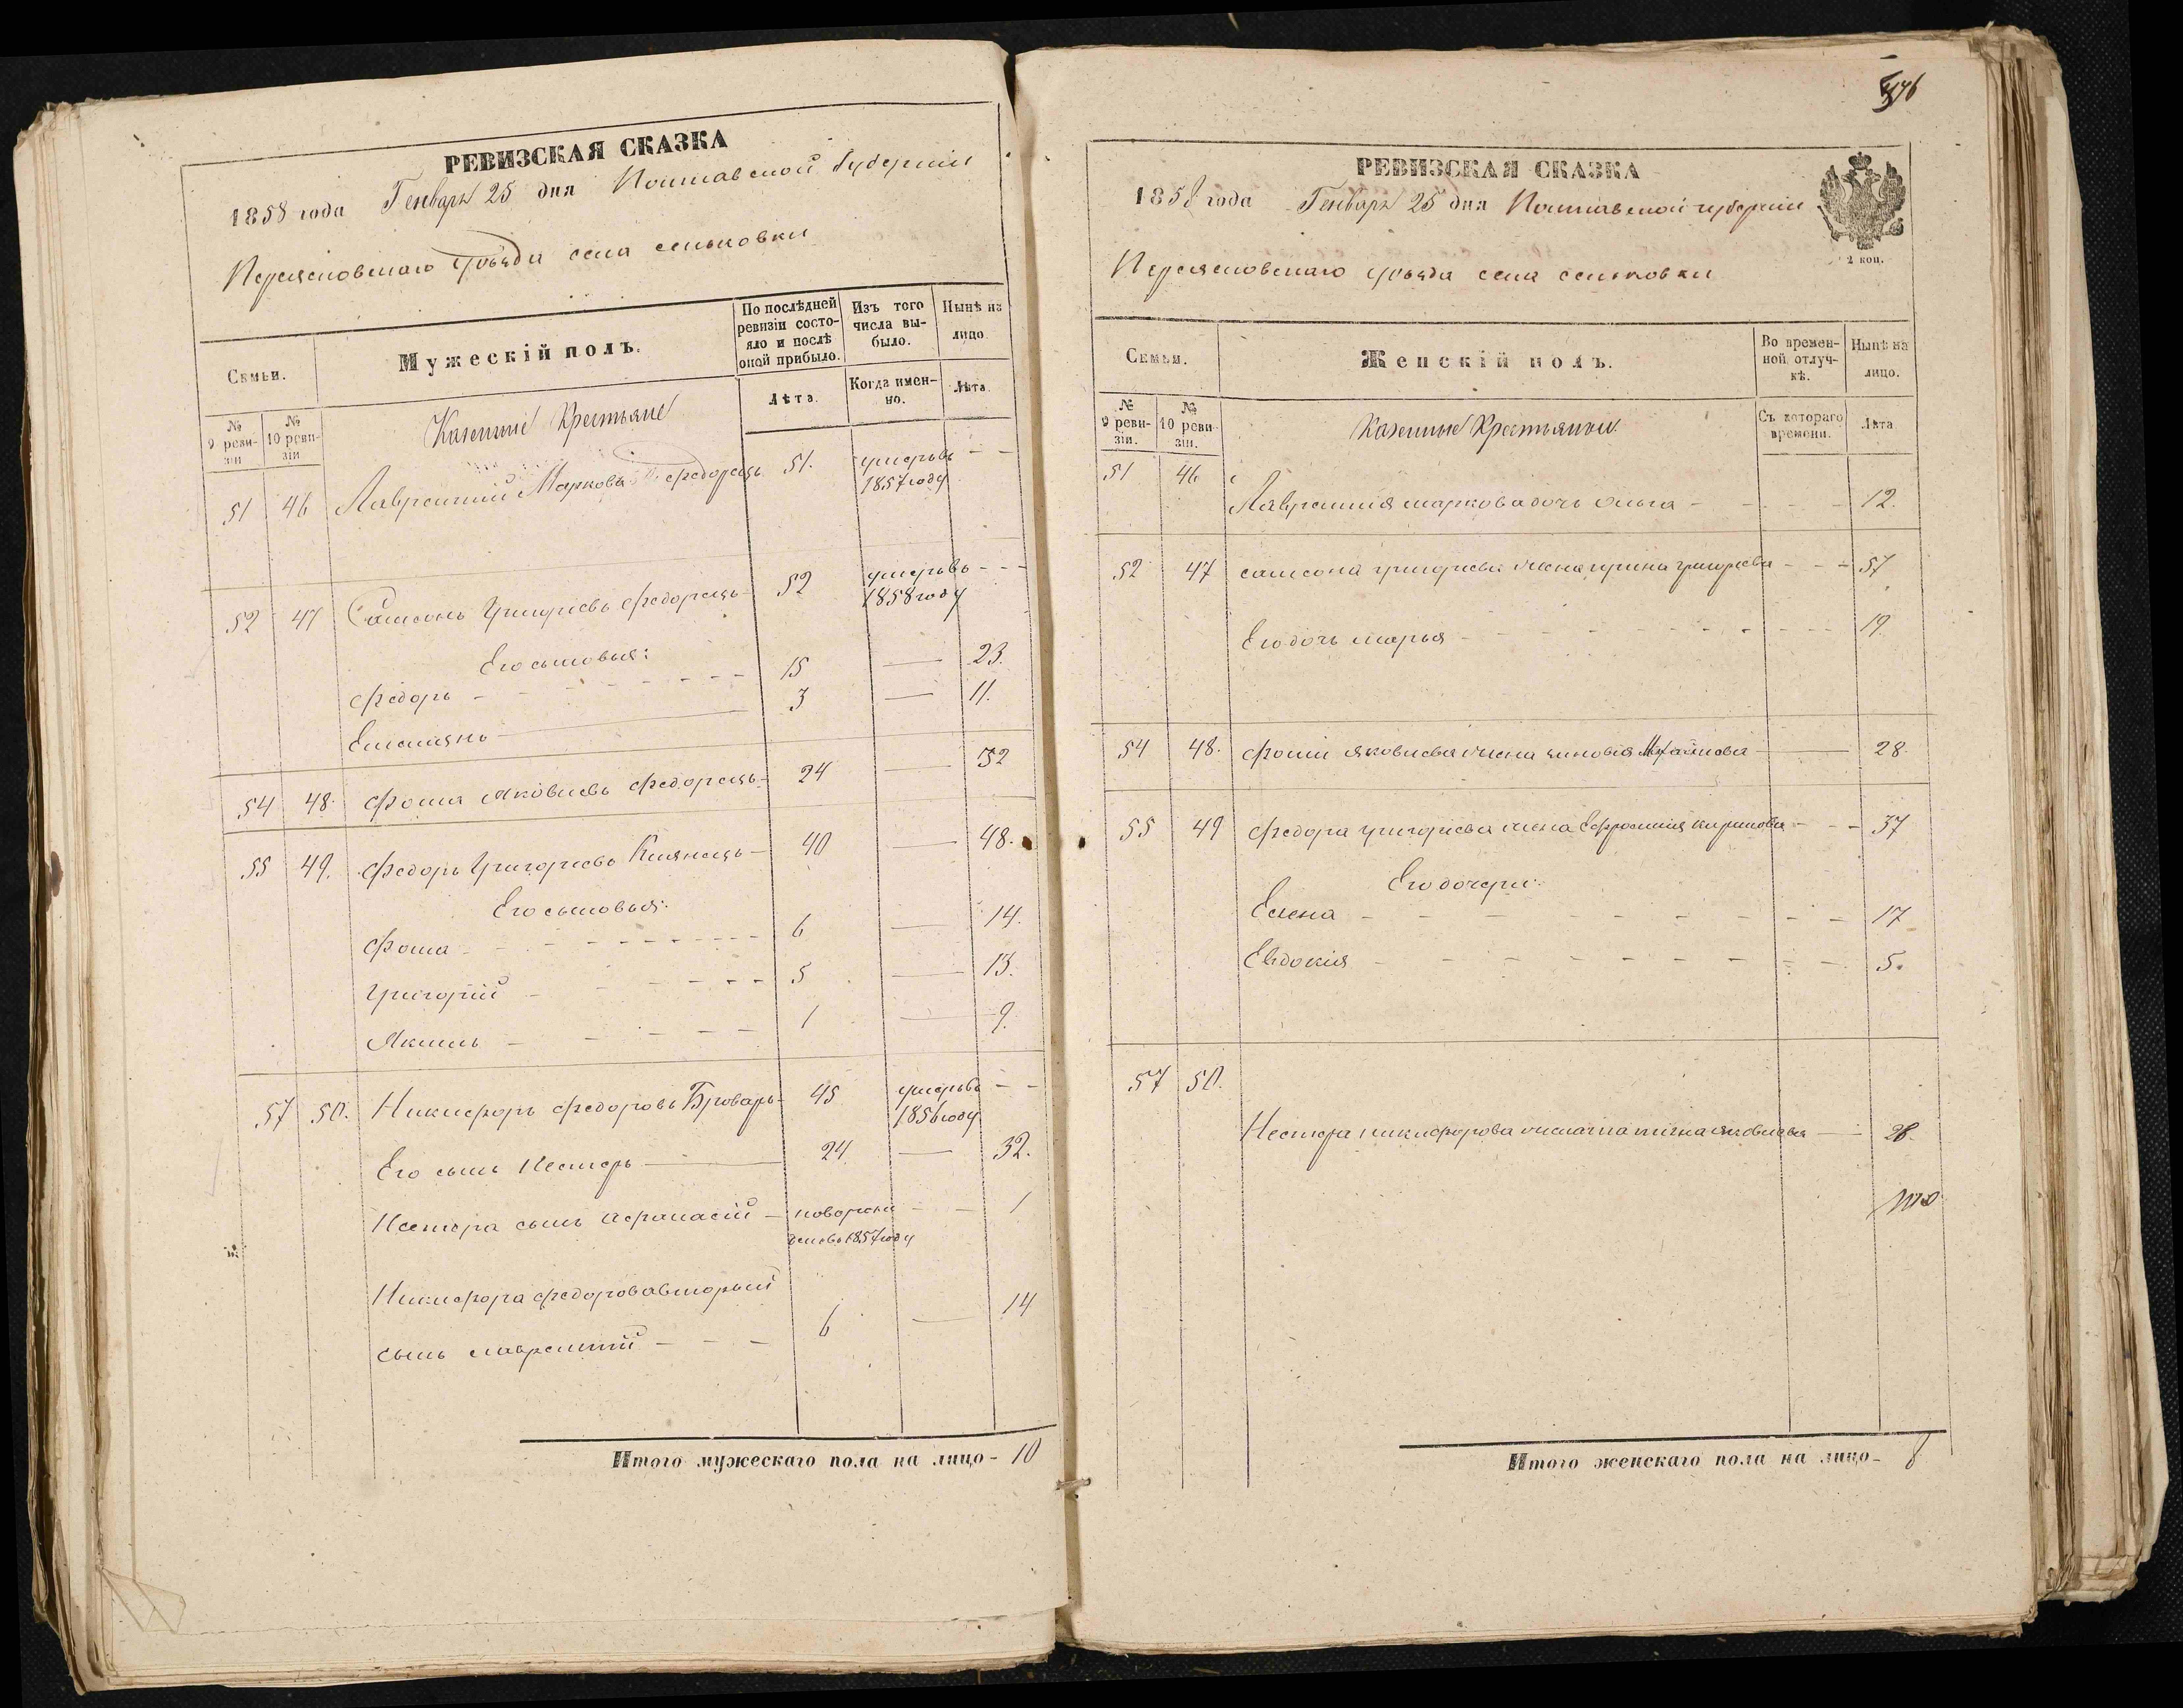 РЕВИЗСКАЯ СКАЗКА
1858 года Генваря 25 дня Полтавской Губерніи
Переясловскаго уѣзда села сеньковки
Семьи.
Мужескій полъ.
По послѣдней ревизіи состояло и послѣ оной прибыло.
Изъ того числа выбыло.
Нынѣ на лицо
№ 9 ревизіи
№ 10 ревизіи
Казенные Крестьяне
Лѣта.
Когда именно.
Лѣта.
51 46 Лаврентій Марковъ федорецъ 51. умеръ въ 1857 году
52 47 Самсонъ Григорьевъ федорецъ 52 умеръ въ 1858 году
Его сыновья:
федоръ 15 23.
Емельянъ 3 11.
54 48. фома Яковлевъ федорецъ 24 32
55 49. федоръ Григорьевъ Киянецъ 40 48.
Его сыновья:
фома 6 14.
григорій 5 13.
Якимъ 1 9.
57 50. Никифоръ федоровъ Броваръ 45 умеръ въ 1856 году
Его сынъ Несторъ 24 32.
Нестора сынъ Афанасій новорожденъ въ 1857 году 1
Никифора федорова вторый
сынъ лаврентій 6 14
Итого мужескаго пола на лицо - 10
РЕВИЗСКАЯ СКАЗКА
1858 года Генваря 25 дня Полтавской губерніи
2 коп.
Переясловскаго уѣзда села сеньковки
Семьи.
Женскій полъ.
Во временной отлучкѣ.
Нынѣ на лицо.
№ 9 ревизіи.
№ 10 ревизіи.
Казенные Крестьянки
Съ котораго времени.
Лѣта
51 46
Лаврентія маркова дочь ольга 12.
52 47 самсона григорьева жена ирина григорьева 57
Его дочь марья 19.
54 48. фомы яковлева жена зиновія 28.
55 49 федора григорьева жена Ефросинія кирилова 37
Его дочери:
Елена 17
Евдокія 5.
57 50.
Нестора никифорова жена яковлева 28.
Итого женскаго пола на лицо - 8